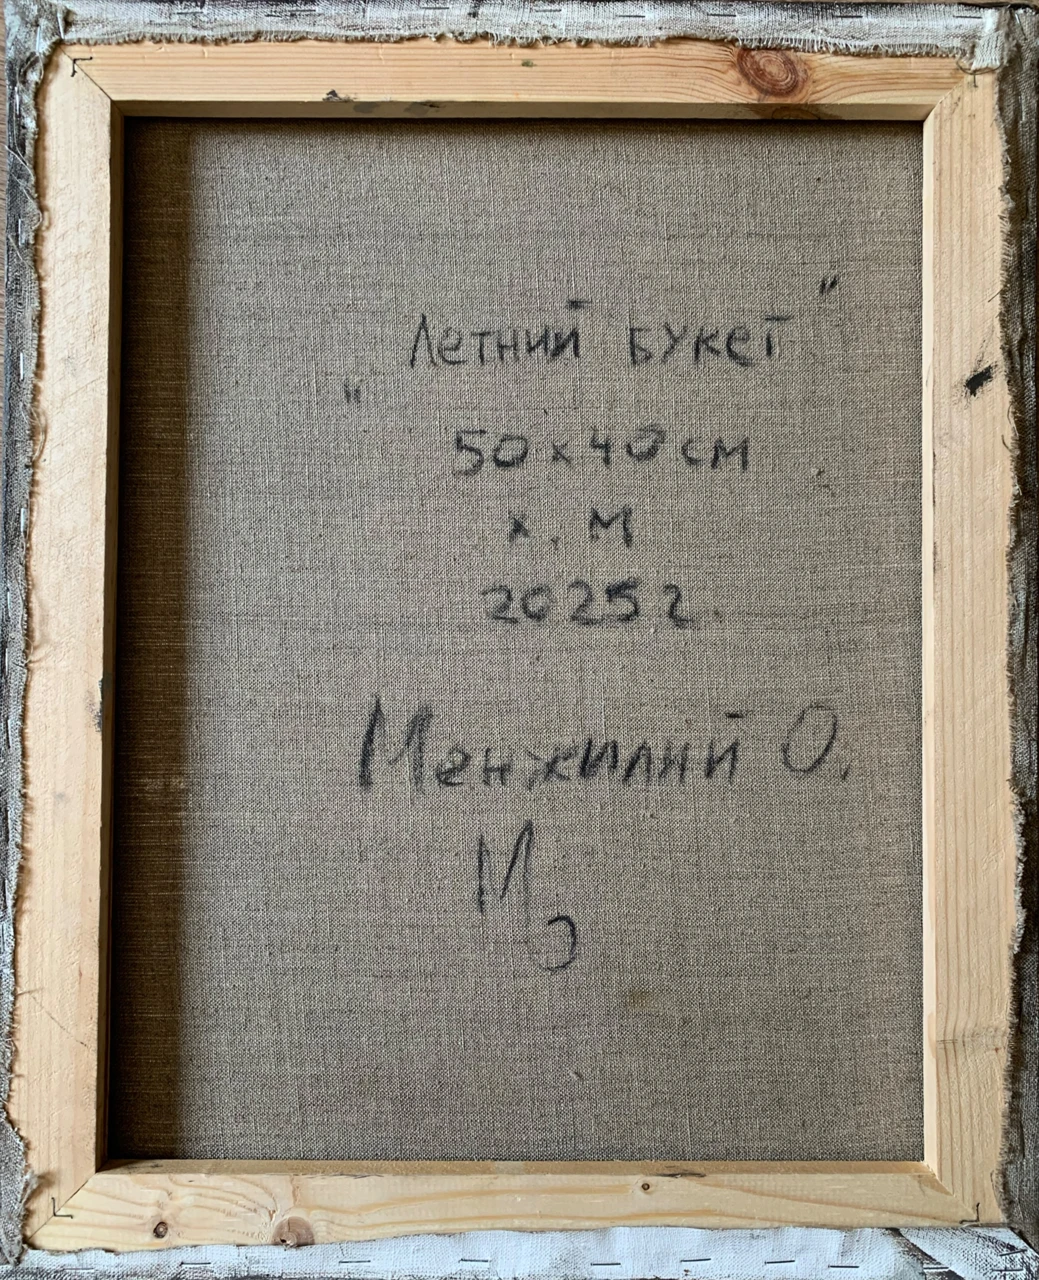 "Летний букет"
50х40см
х. м
2025 г.
Менжилий О.
МО